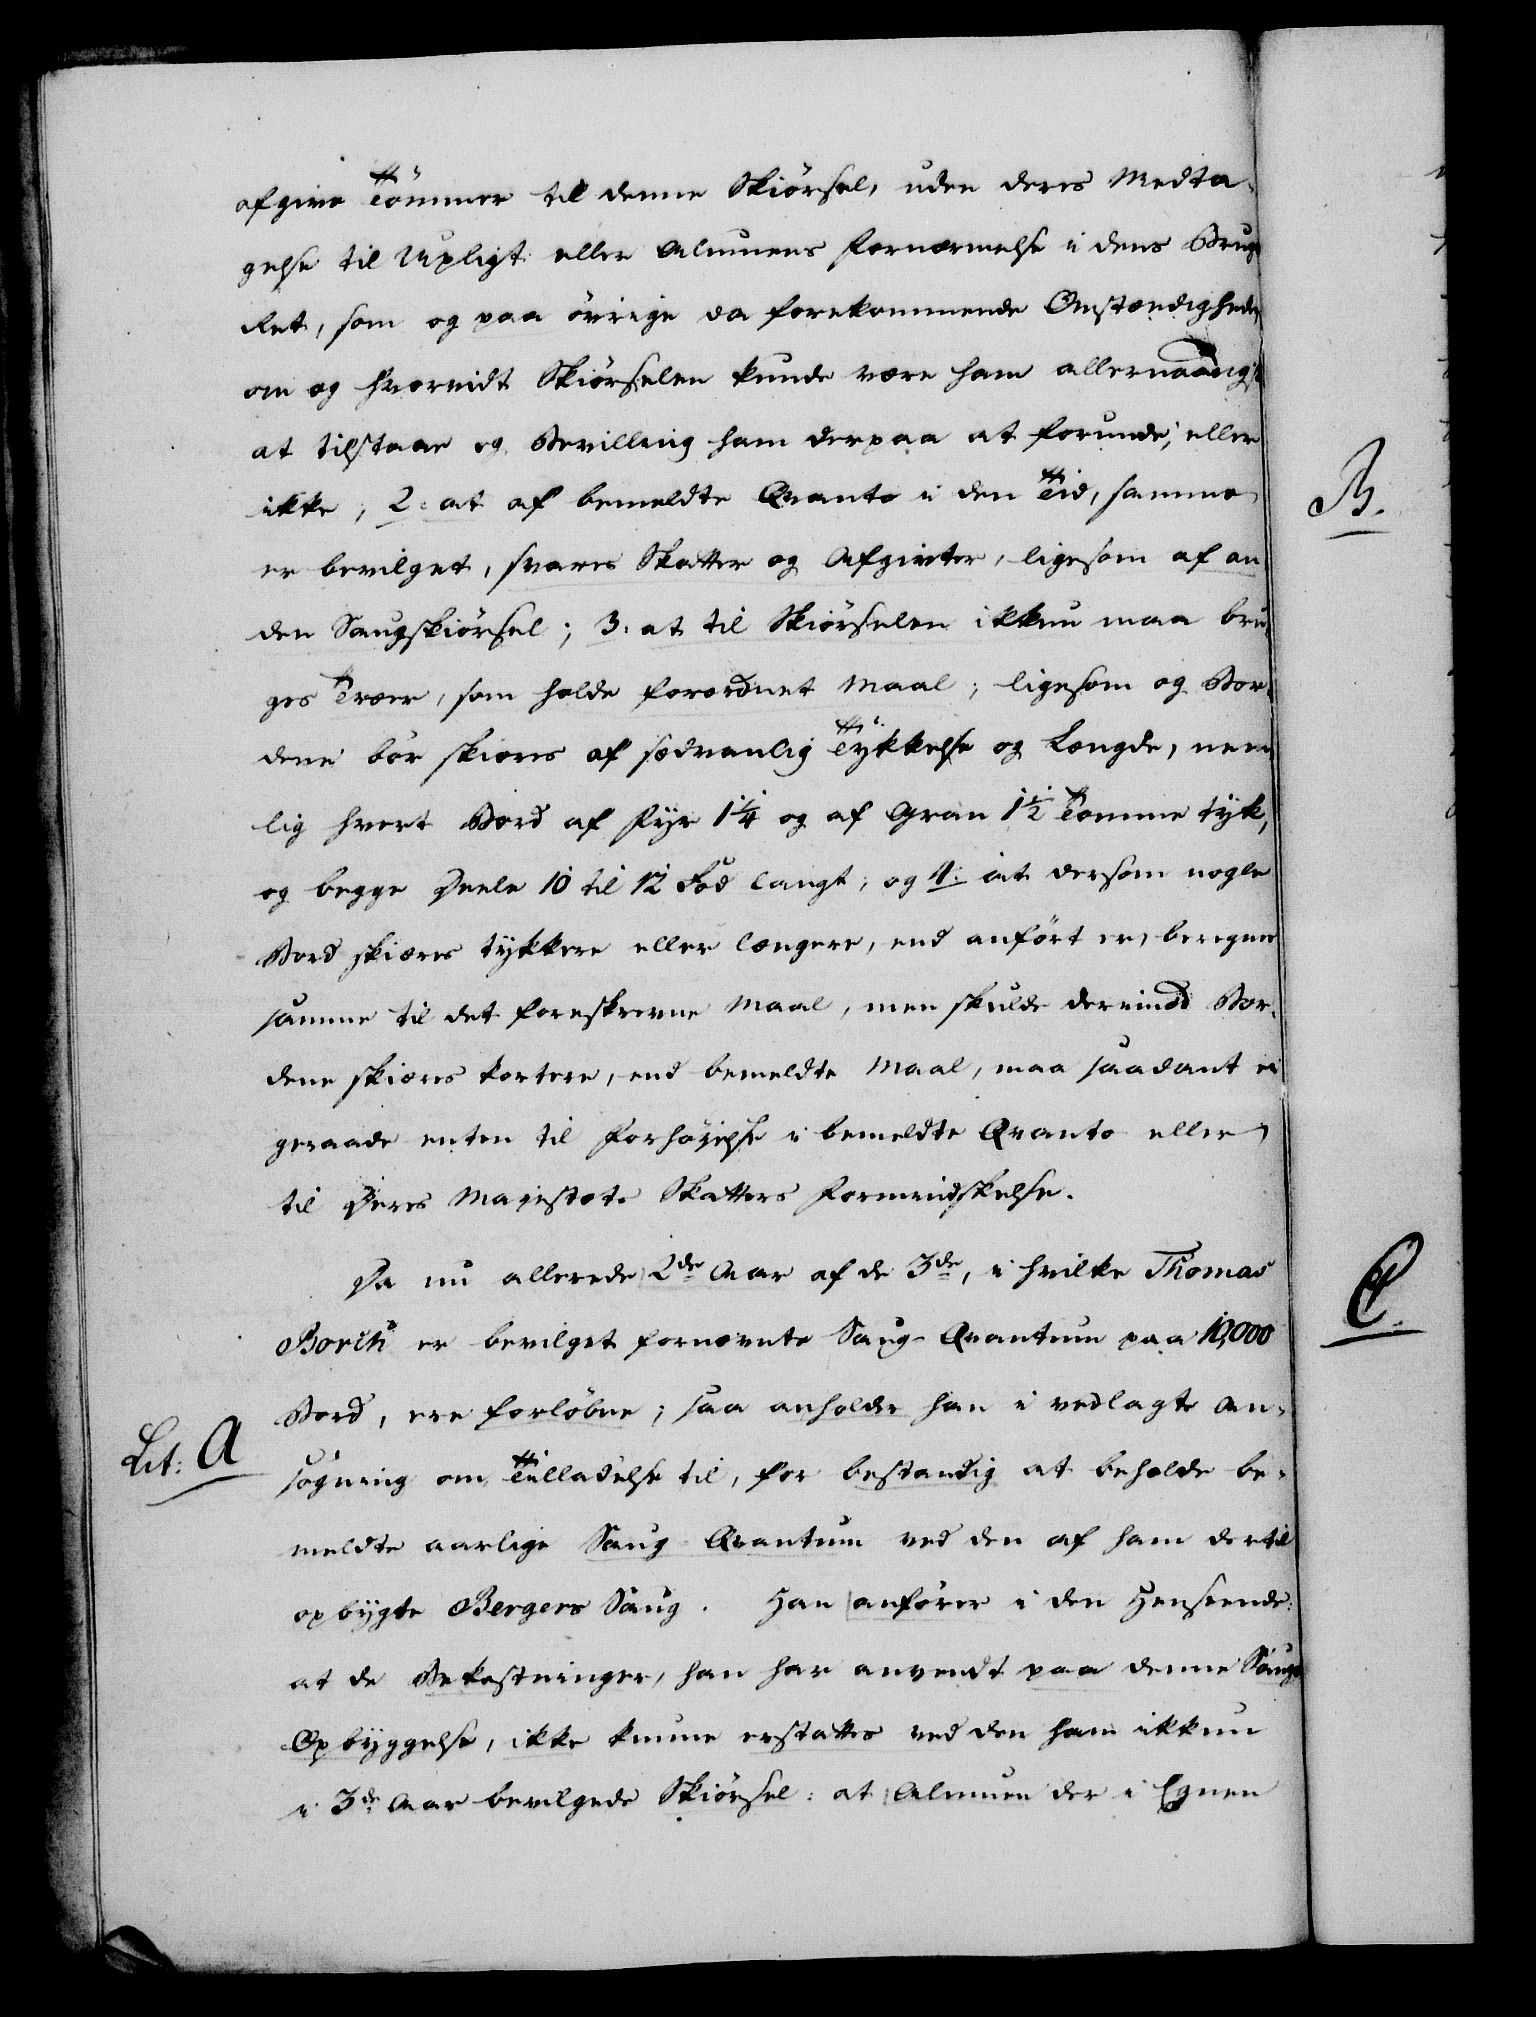 afgive Tömmer til denne Skiörsel, uden deres Medta-
gelse til Upligt eller Almuens Fornærmelse i dens Brugs
Ret, som og paa övrige da forekommende Omstændigheder,
om og hvorvidt Skiörselen kunde være ham allernaadigst
at tilstaae og Bevilling ham derpaa at forunde, eller
ikke; 2. at af bemeldte Qvanto i den Tid, samme
er bevilget, svares Skatter og Afgivter, ligesom af an
den Saugskiörsel; 3. at til Skiörselen ikkun maa bru
ges Træer, som holde forordnet Maal; ligesom og Bor
dene bör skiæres af sædvanlig Tykkelse og Længde, nem
lig hvert Bord af Fyr 1¼ og af Gran 1½ Tomme tyk,
og begge Deele 10 til 12 Fod langt; og 4. at dersom nogle
Bord skiæres tykkere eller længere, end anfört er, beregnes
samme til det foreskrevne Maal, men skulde derimod Bor-
dene skiæres kortere, end bemeldte Maal, maa saadant ei
geraade enten til Forhöyelse i bemeldte Qvanto eller
til Deres Majestæts Skatters Formindskelse.
Da nu allerede 2de Aar af de 3de, i hvilke Thomas
Borch er bevilget fornævnte Saug-Qvantum paa 10,000
Bord, ere forlöbne; saa anholder han i vedlagte An-
Lit: A
sögning om Tilladelse til, for bestandig at beholde be-
meldte aarlige Saug-Qvantum ved den af ham dertil
opbygte Bergers Saug. Han anförer i den Henseende:
at de Bekostninger, han har anvendt paa denne Saugs
Opbyggelse, ikke kunne erstattes ved den ham ikkun
i 3de Aar bevilgede Skiörsel: at Almuen der i Egnen
B.
C.